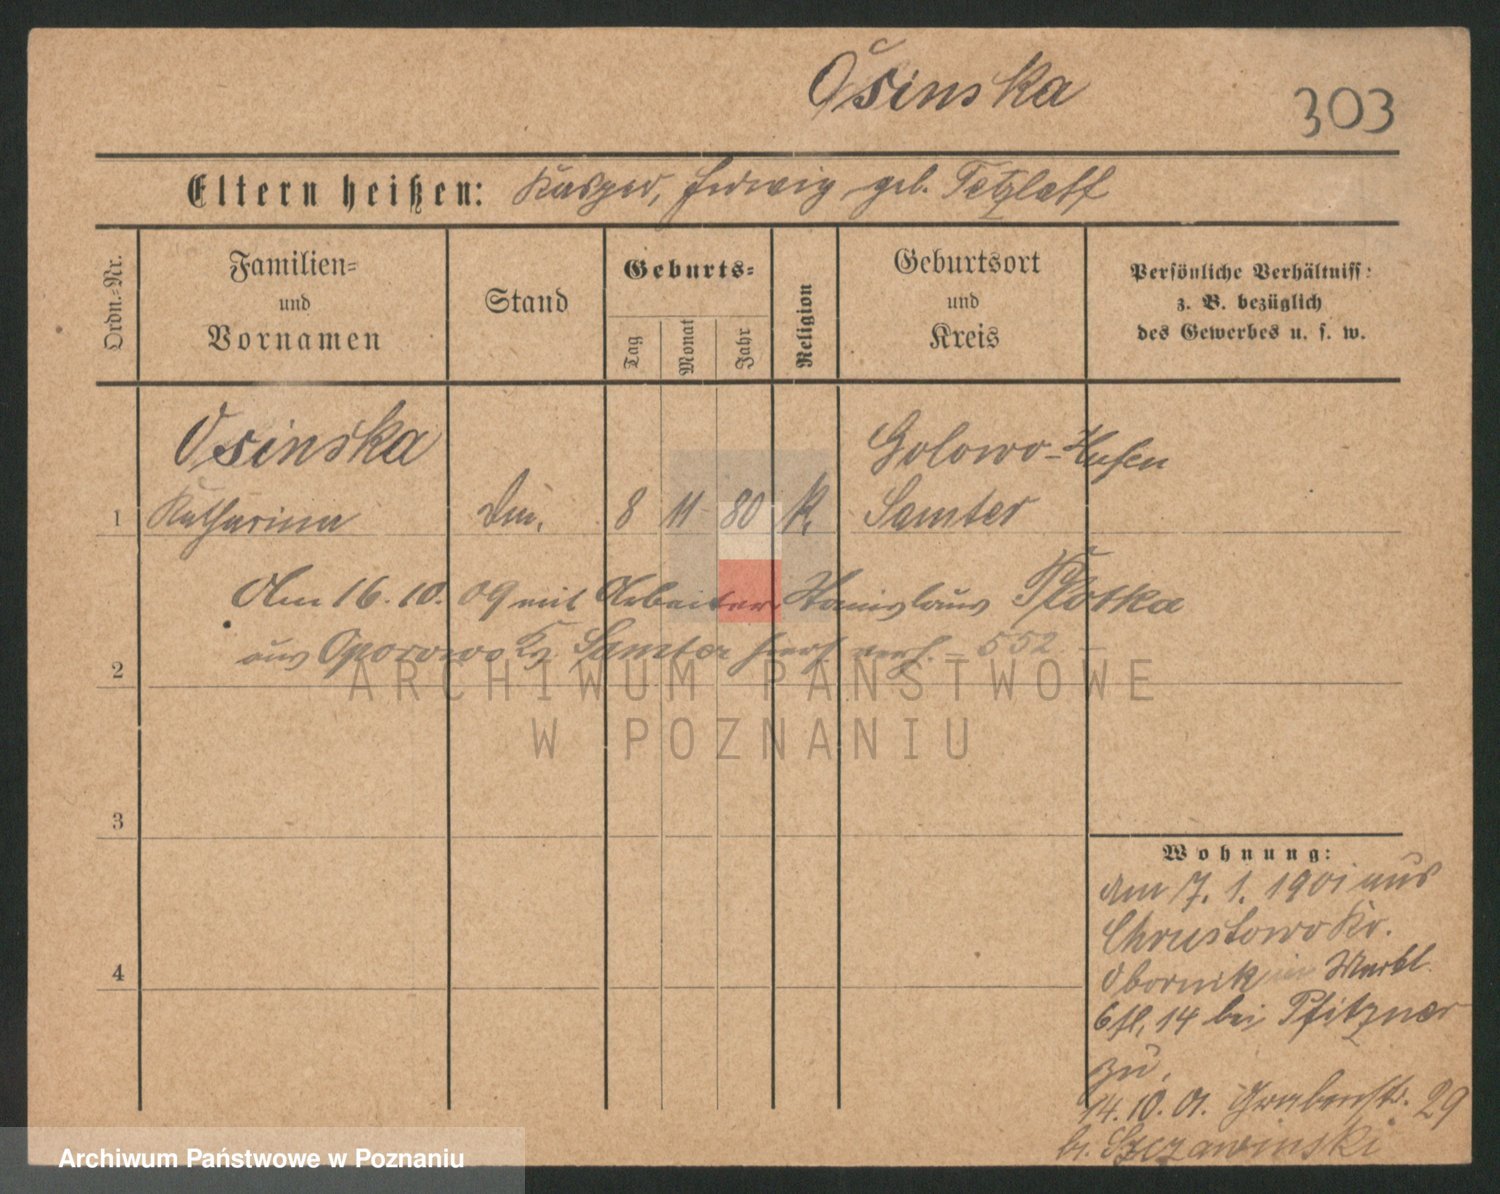 Osinska
303
Eltern heißen: Kasper, Hedwig geb. Tetzlaff
Ordn.-Nr.
Familien-
und
Vornamen
Stand
Geburts-
Tag
Monat
Jahr
Religion
Geburtsort
und
Kreis
Persönliche Verhältniss:
z. B. bezüglich
des Gewerbes u. s. w.
Osinska
Golowo-Hufen
1 Katharina 8 11 80 k. Samter
Am 16. 10. 09 mit Arbeiter Stanislaus Plotka
aus Oporowo Kr. Samter hier verh. - 552 -
2
ARCHIWUM PAŃSTWOWE
W POZNANIU
3
4
Wohnung:
am 7. 1. 1901 aus
Chrustowo Kr.
Obornik
14 bei Pfitzner
zu.
14. 10. 01. Grabenstr. 29
b. Szczawinski
Archiwum Państwowe w Poznaniu